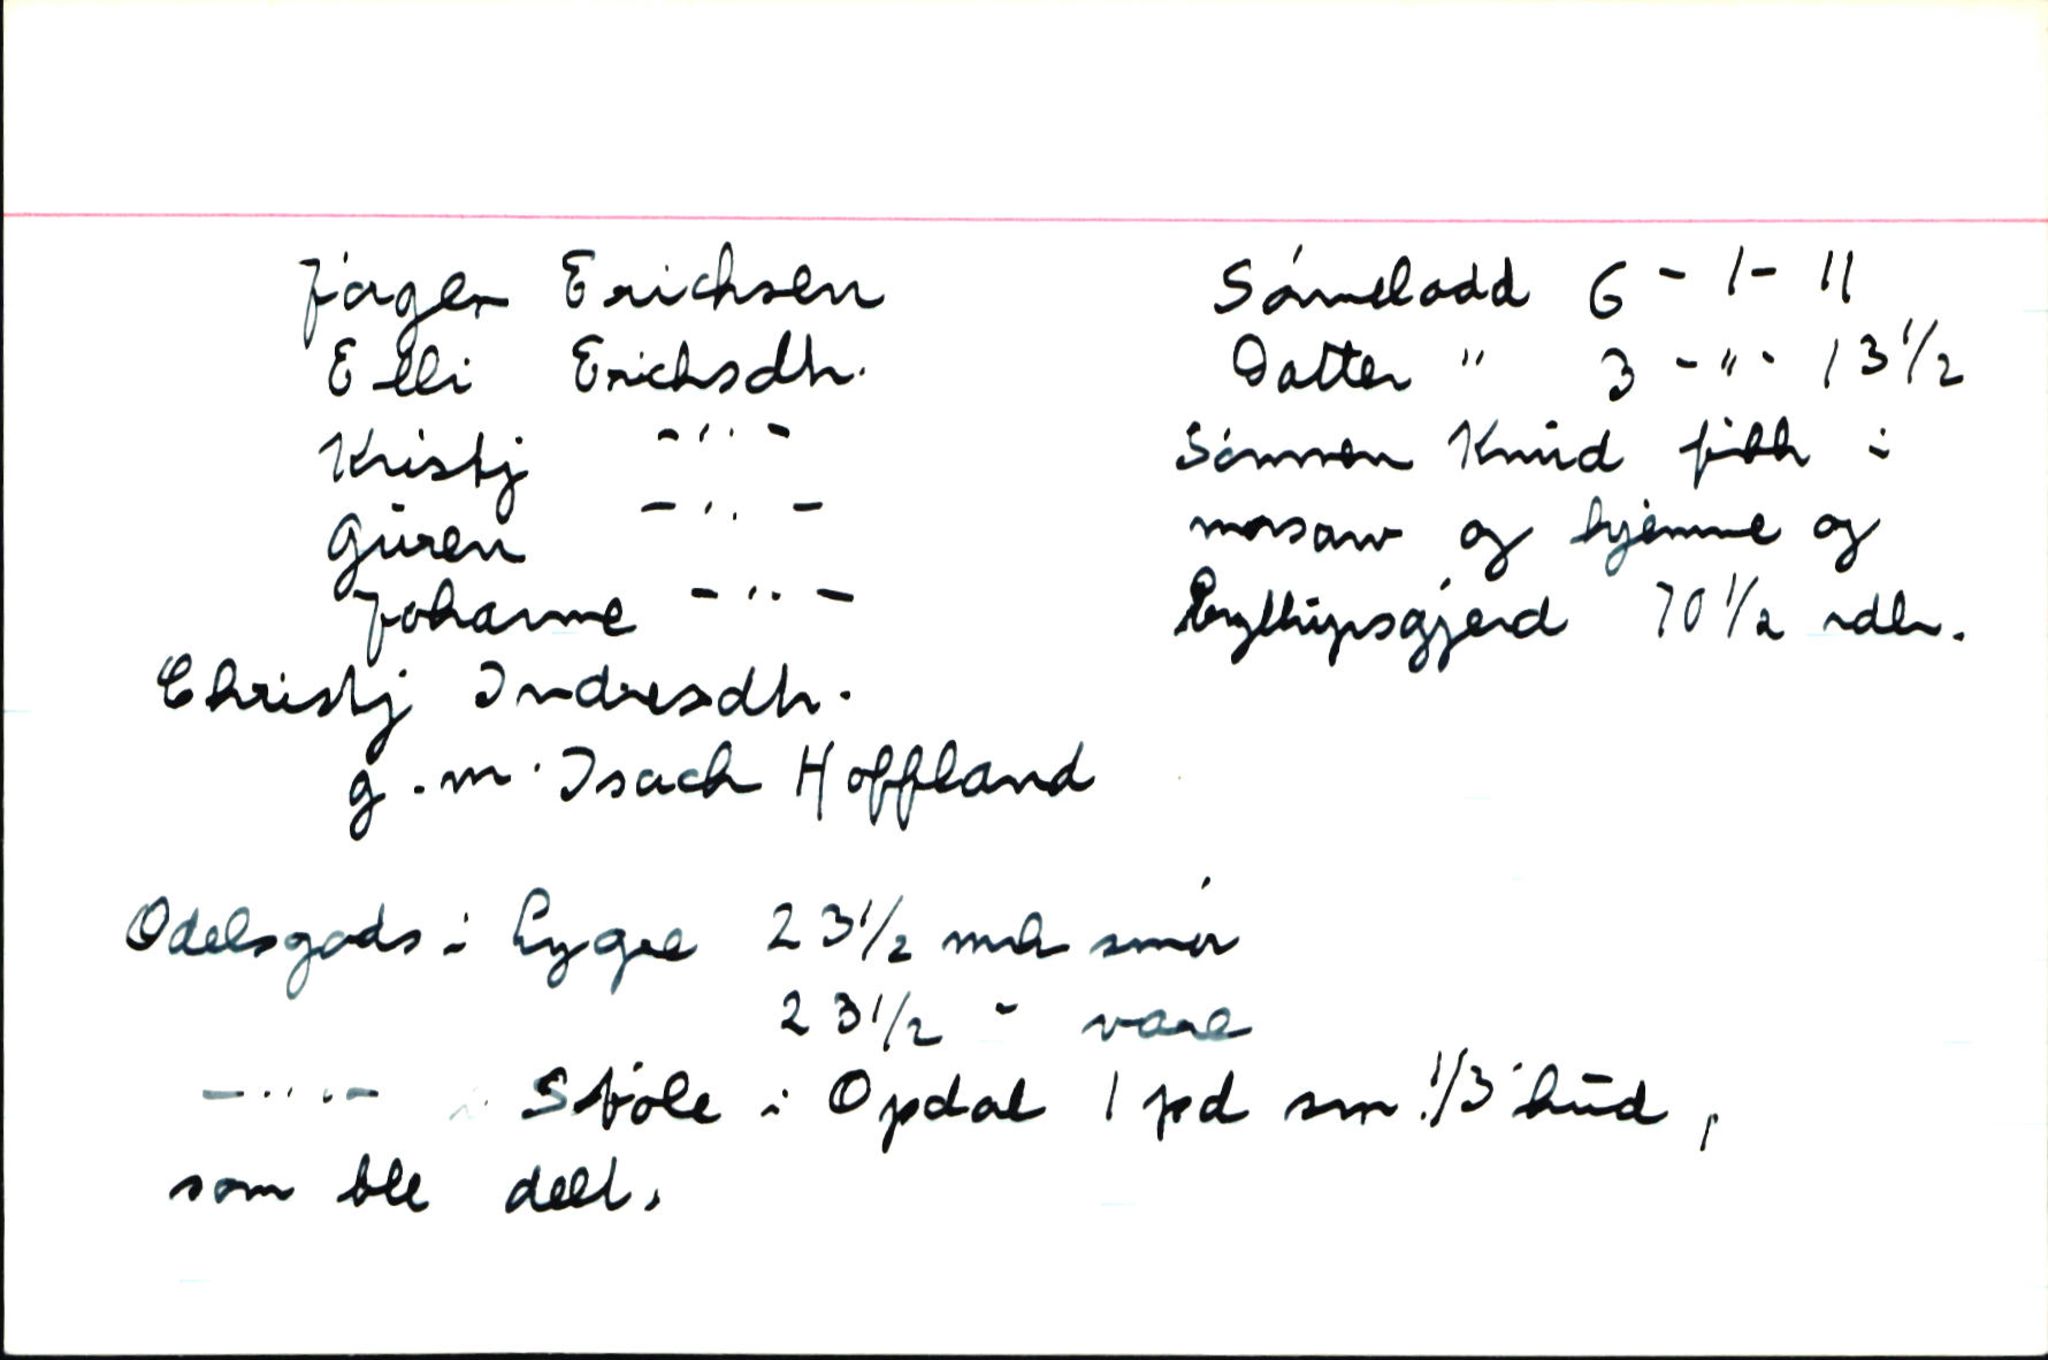 Jørgen Erichsen
Elli Erichsdtr.
Kristj -"-
Guren -"-
Johanne -"-
Christj Indresdtr.
g.m. Isach Hoffland
Sønnelodd 6 - 1 - 11
Datter " 3 - " - 13 1/2
Sønnen Knud fikk i
morsarv og hjemme og
Bryllupsgjerd 70 1/2 rdlr.
Odelsgods i Lygre 23 1/2 mrk smør
23 1/2 " vare
-"- i Støle i Opdal 1 pd sm. 1/3 hud,
som ble delt.